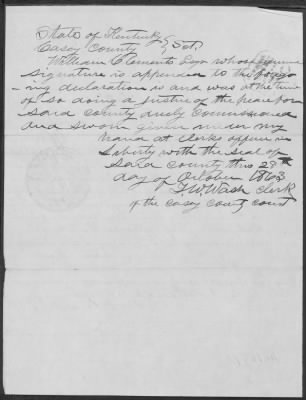 State of Kentucky
Casey County } Sct.
William Clements Esqr whose genuine
signature is appended to the forgo
-ing declaration is and was at the time
of so doing a justice of the peace for
said County duly Commissioned
and sworn given under my
hand at Clerks office in
Liberty with the seal of
said County this 29th
day of October 1863
J W Wash Clerk
of the Casey County Court